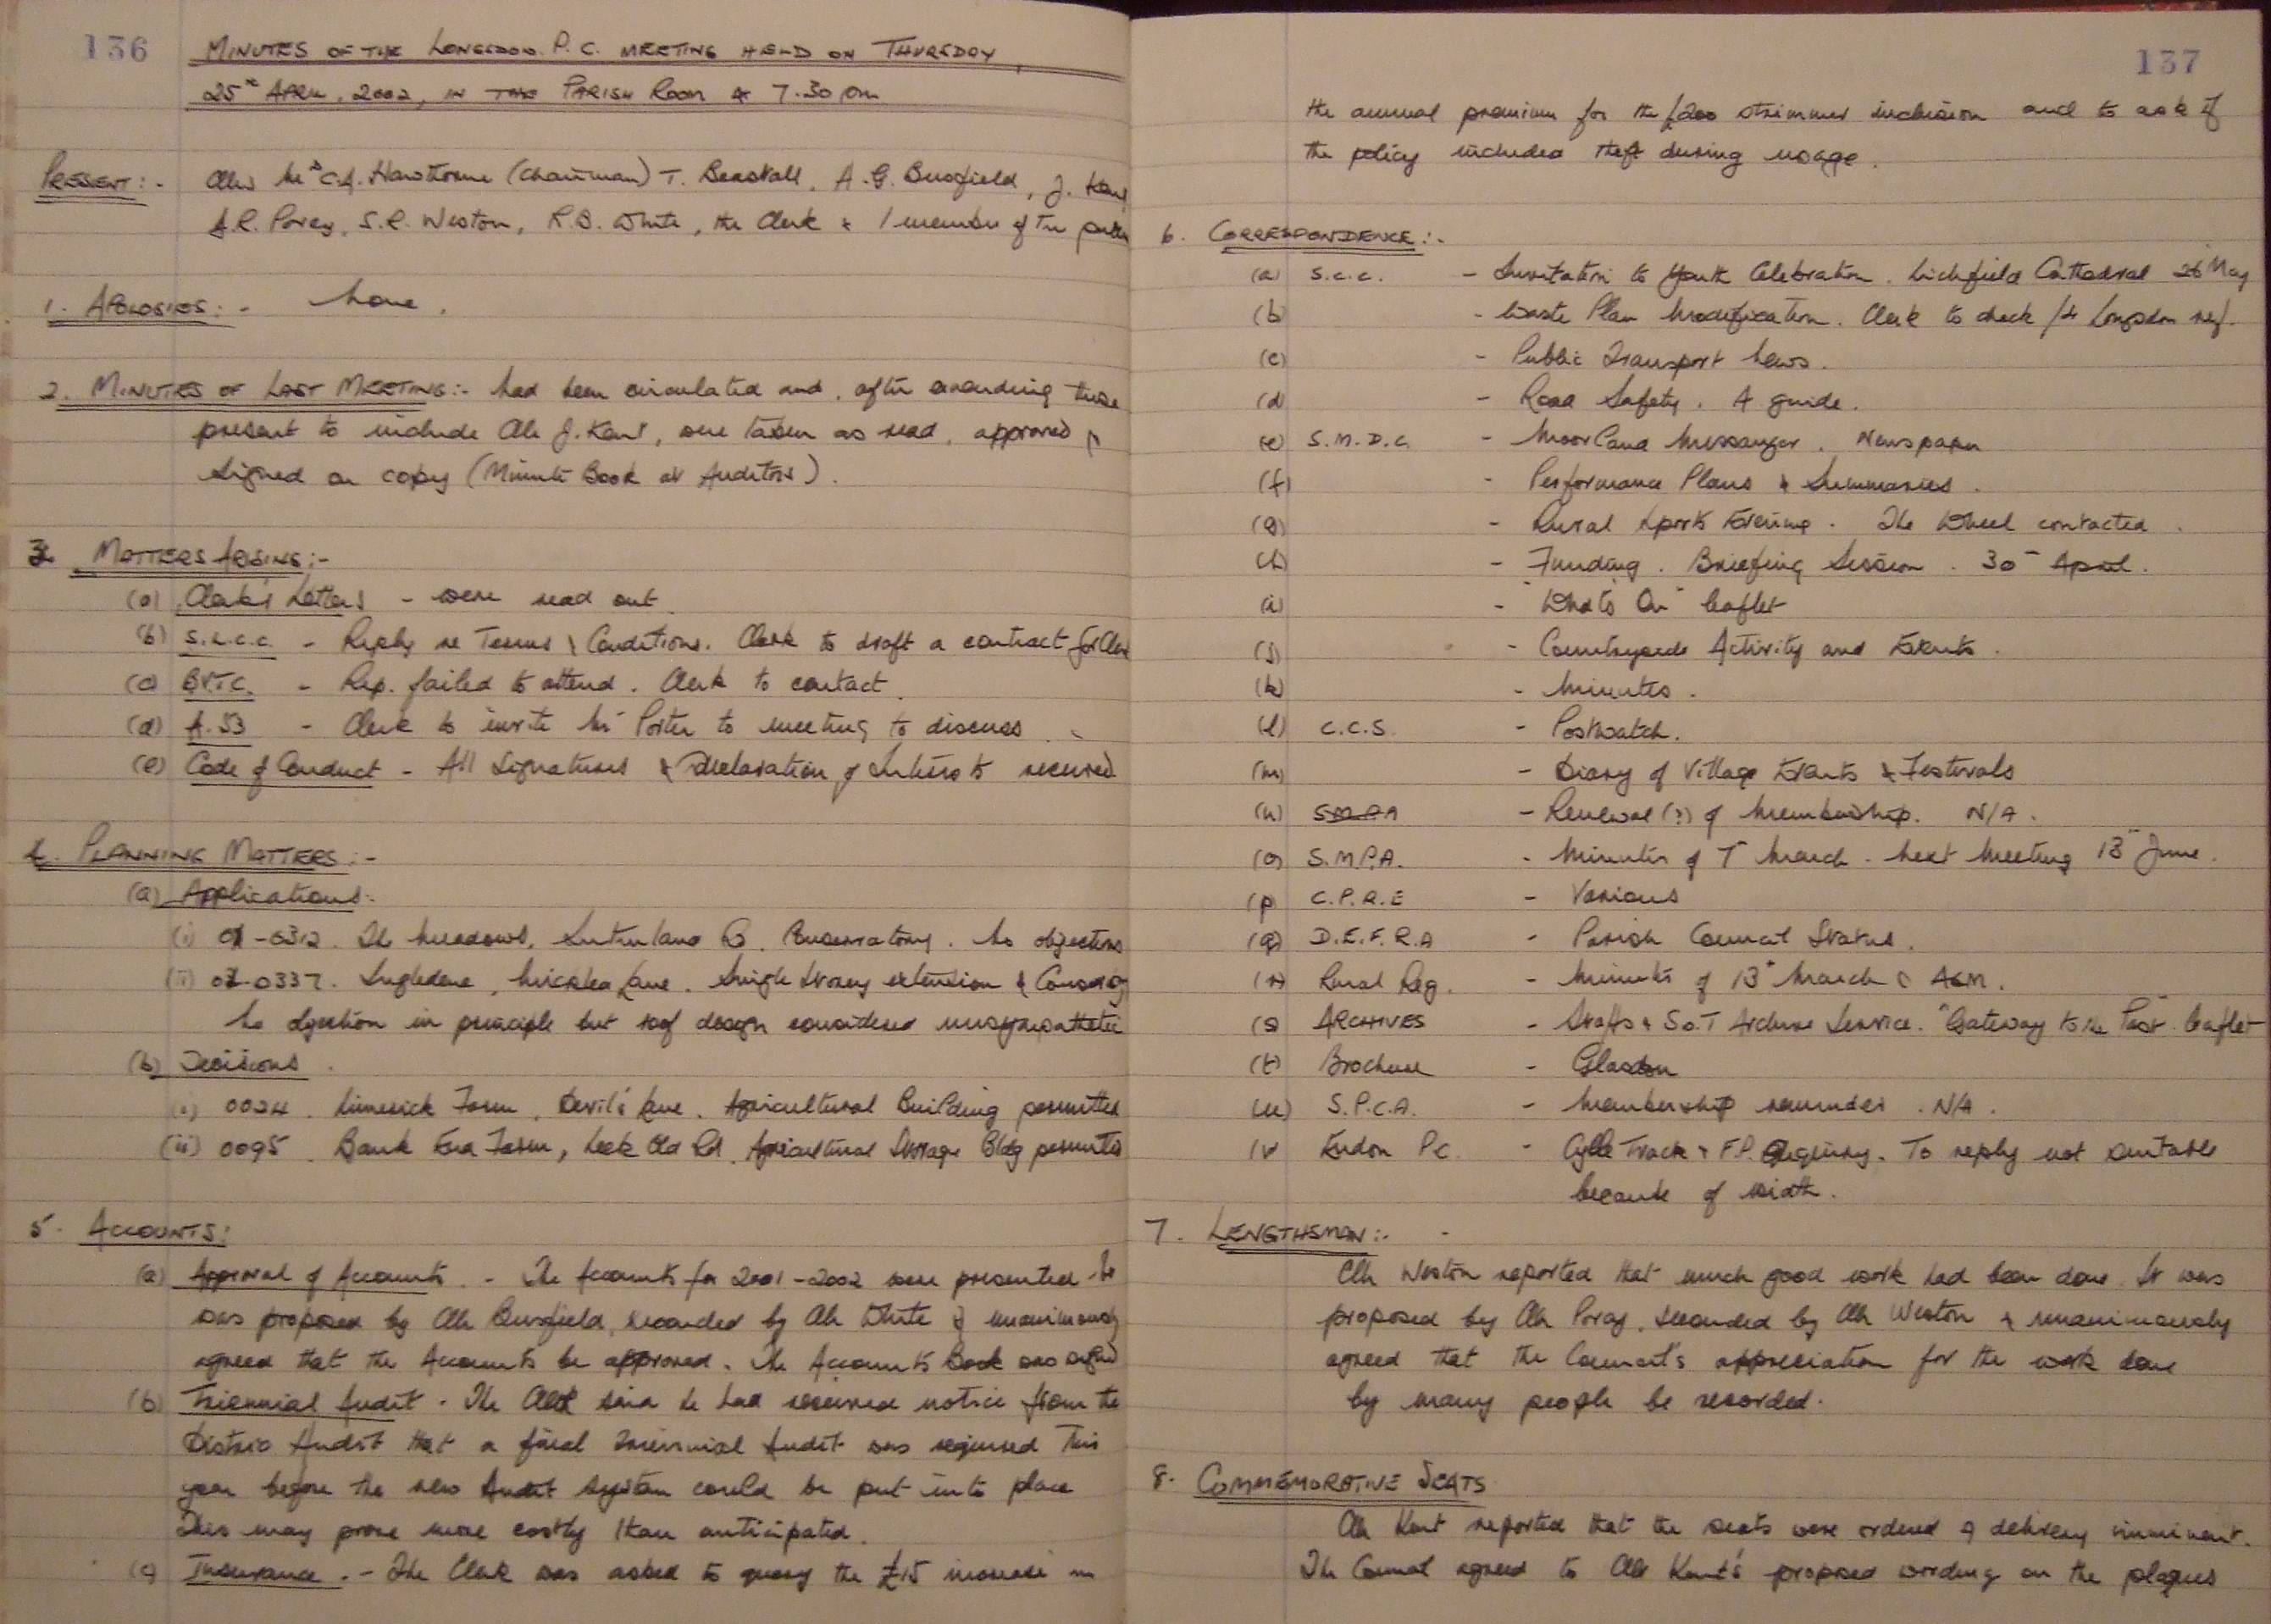 136
MINUTES OF THE LONGSDON P.C. MEETING HELD ON THURSDAY,
25th APRIL, 2002, IN THE PARISH ROOM at 7.30 pm
PRESENT:- Cllrs Mrs C.A. Hawthorne (Chairman) T. Beastall, A.G. Busfield, J. Kent,
A.R. Povey, S.R. Weston, R.B. White, the Clerk & 1 member of the public
1. APOLOGIES:- None.
2. MINUTES OF LAST MEETING:- had been circulated and, after amending those
present to include Cllr J. Kent, were taken as read, approved &
signed on copy (Minute Book at Auditors).
3. MATTERS ARISING:-
(a) Clerk's Letters - were read out.
(b) S.L.C.C. - Reply re Terms & Conditions. Clerk to draft a contract for Clerk
(c) B.V.T.C. - Rep. failed to attend. Clerk to contact.
(d) A.53 - Clerk to invite Mr Porter to meeting to discuss.
(e) Code of Conduct - All signatures & Declaration of Interests received
4. PLANNING MATTERS:-
(a) Applications:-
(i) 02-0312. The Meadows, Sutherland Rd. Conservatory. No objections
(ii) 02-0337. Ingledene, Micklea Lane. Single storey extension &
No objection in principle but roof design considered unsympathetic
(b) Decisions.
(i) 0024. Limerick Farm, Devil's Lane. Agricultural Building permitted
(ii) 0095. Bank End Farm, Leek Old Rd. Agricultural Storage Bldg permitted
5. ACCOUNTS:
(a) Approval of Accounts. - The Accounts for 2001-2002 were presented. It
was proposed by Cllr Busfield, seconded by Cllr White & unanimously
agreed that the Accounts be approved. The Accounts Book was signed
(b) Triennial Audit. The Clerk said he had received notice from the
District Audit that a final Triennial Audit was required this
year before the new Audit system could be put into place
This may prove more costly than anticipated.
(c) Insurance. - The Clerk was asked to query the £15 increase in
137
the annual premium for the £200 strimmer inclusion and to ask if
the policy included theft during usage.
6. CORRESPONDENCE:-
(a) S.C.C. - Invitation to Youth Celebration. Lichfield Cathedral 26 May
(b) - Waste Plan Modification. Clerk to check for Longsdon ref.
(c) - Public Transport News.
(d) - Road Safety. A guide.
(e) S.M.D.C. - Moorland Messenger. Newspaper
(f) - Performance Plans & Summaries.
(g) - Rural Sports Evening. The Wheel contacted.
(h) - Funding. Briefing Session. 30th April.
(i) - "What's On" leaflet
(j) - Countryside Activity and Events.
(k) - Minutes.
(l) C.C.S. - Postwatch.
(m) - Diary of Village Events & Festivals
(n) SMPA - Renewal (?) of Membership. N/A.
(o) S.M.P.A. - Minutes of 7th March. Next Meeting 13th June.
(p) C.P.R.E - Various
(q) D.E.F.R.A - Parish Council Status.
(r) Rural Reg. - Minutes of 13th March & AGM.
(s) ARCHIVES - Staffs & SoT Archive Service. "Gateway to the Past" leaflet
(t) Brochure - Glasdon
(u) S.P.C.A. - Membership reminder. N/A.
(v) Endon P.C. - Cycle Track & F.P. Enquiry. To reply not suitable
because of width.
7. LENGTHSMAN:-
Cllr Weston reported that much good work had been done. It was
proposed by Cllr Povey, seconded by Cllr Weston & unanimously
agreed that the Council's appreciation for the work done
by many people be recorded.
8. COMMEMORATIVE SEATS
Cllr Kent reported that the seats were ordered & delivery imminent.
The Council agreed to Cllr Kent's proposed wording on the plaques